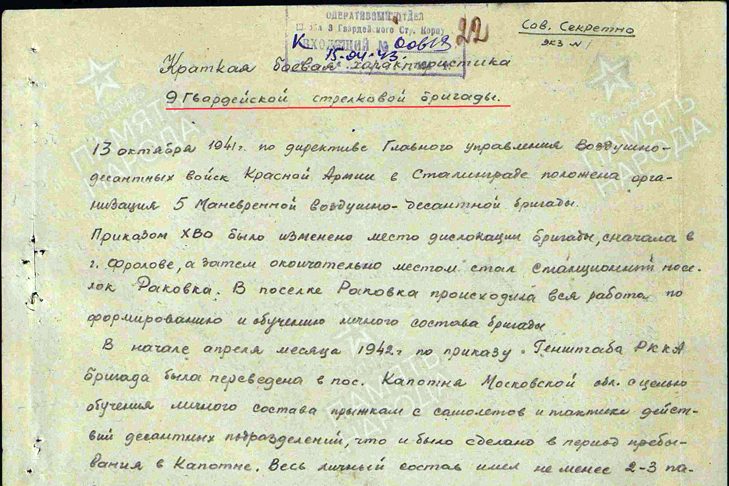 ОПЕРАТИВНЫЙ ОТДЕЛ
3 Гвардейского Стр. Корп
ВХОДЯЩИЙ №
15.04.43.
22
Сов. Секретно
экз N 1
Краткая боевая характеристика
9 Гвардейской стрелковой бригады.
13 октября 1941г. по директиве Главного управления Воздушно-
десантных войск Красной Армии в Сталинграде положена орга-
низация 5 Маневренной воздушно-десантной бригады.
Приказом ХВО было изменено место дислокации бригады, сначала в
г. Фролове, а затем окончательно местом стал станционный посе-
лок Раковка. В поселке Раковка происходила вся работа по
формированию и обучению личного состава бригады
В начале апреля месяца 1942г по приказу Генштаба РККА
бригада была переведена в пос. Капотня Московской обл. с целью
обучения личного состава прыжкам с самолетов и тактике дейст-
вий десантных подразделений, что и было сделано в период пребы-
вания в Капотне. Весь личный состав имел не менее 2-3 па-
ПАМЯТЬ
НАРОДА
ПАМЯТЬ
НАРОДА
ПАМЯТЬ
НАРОДА